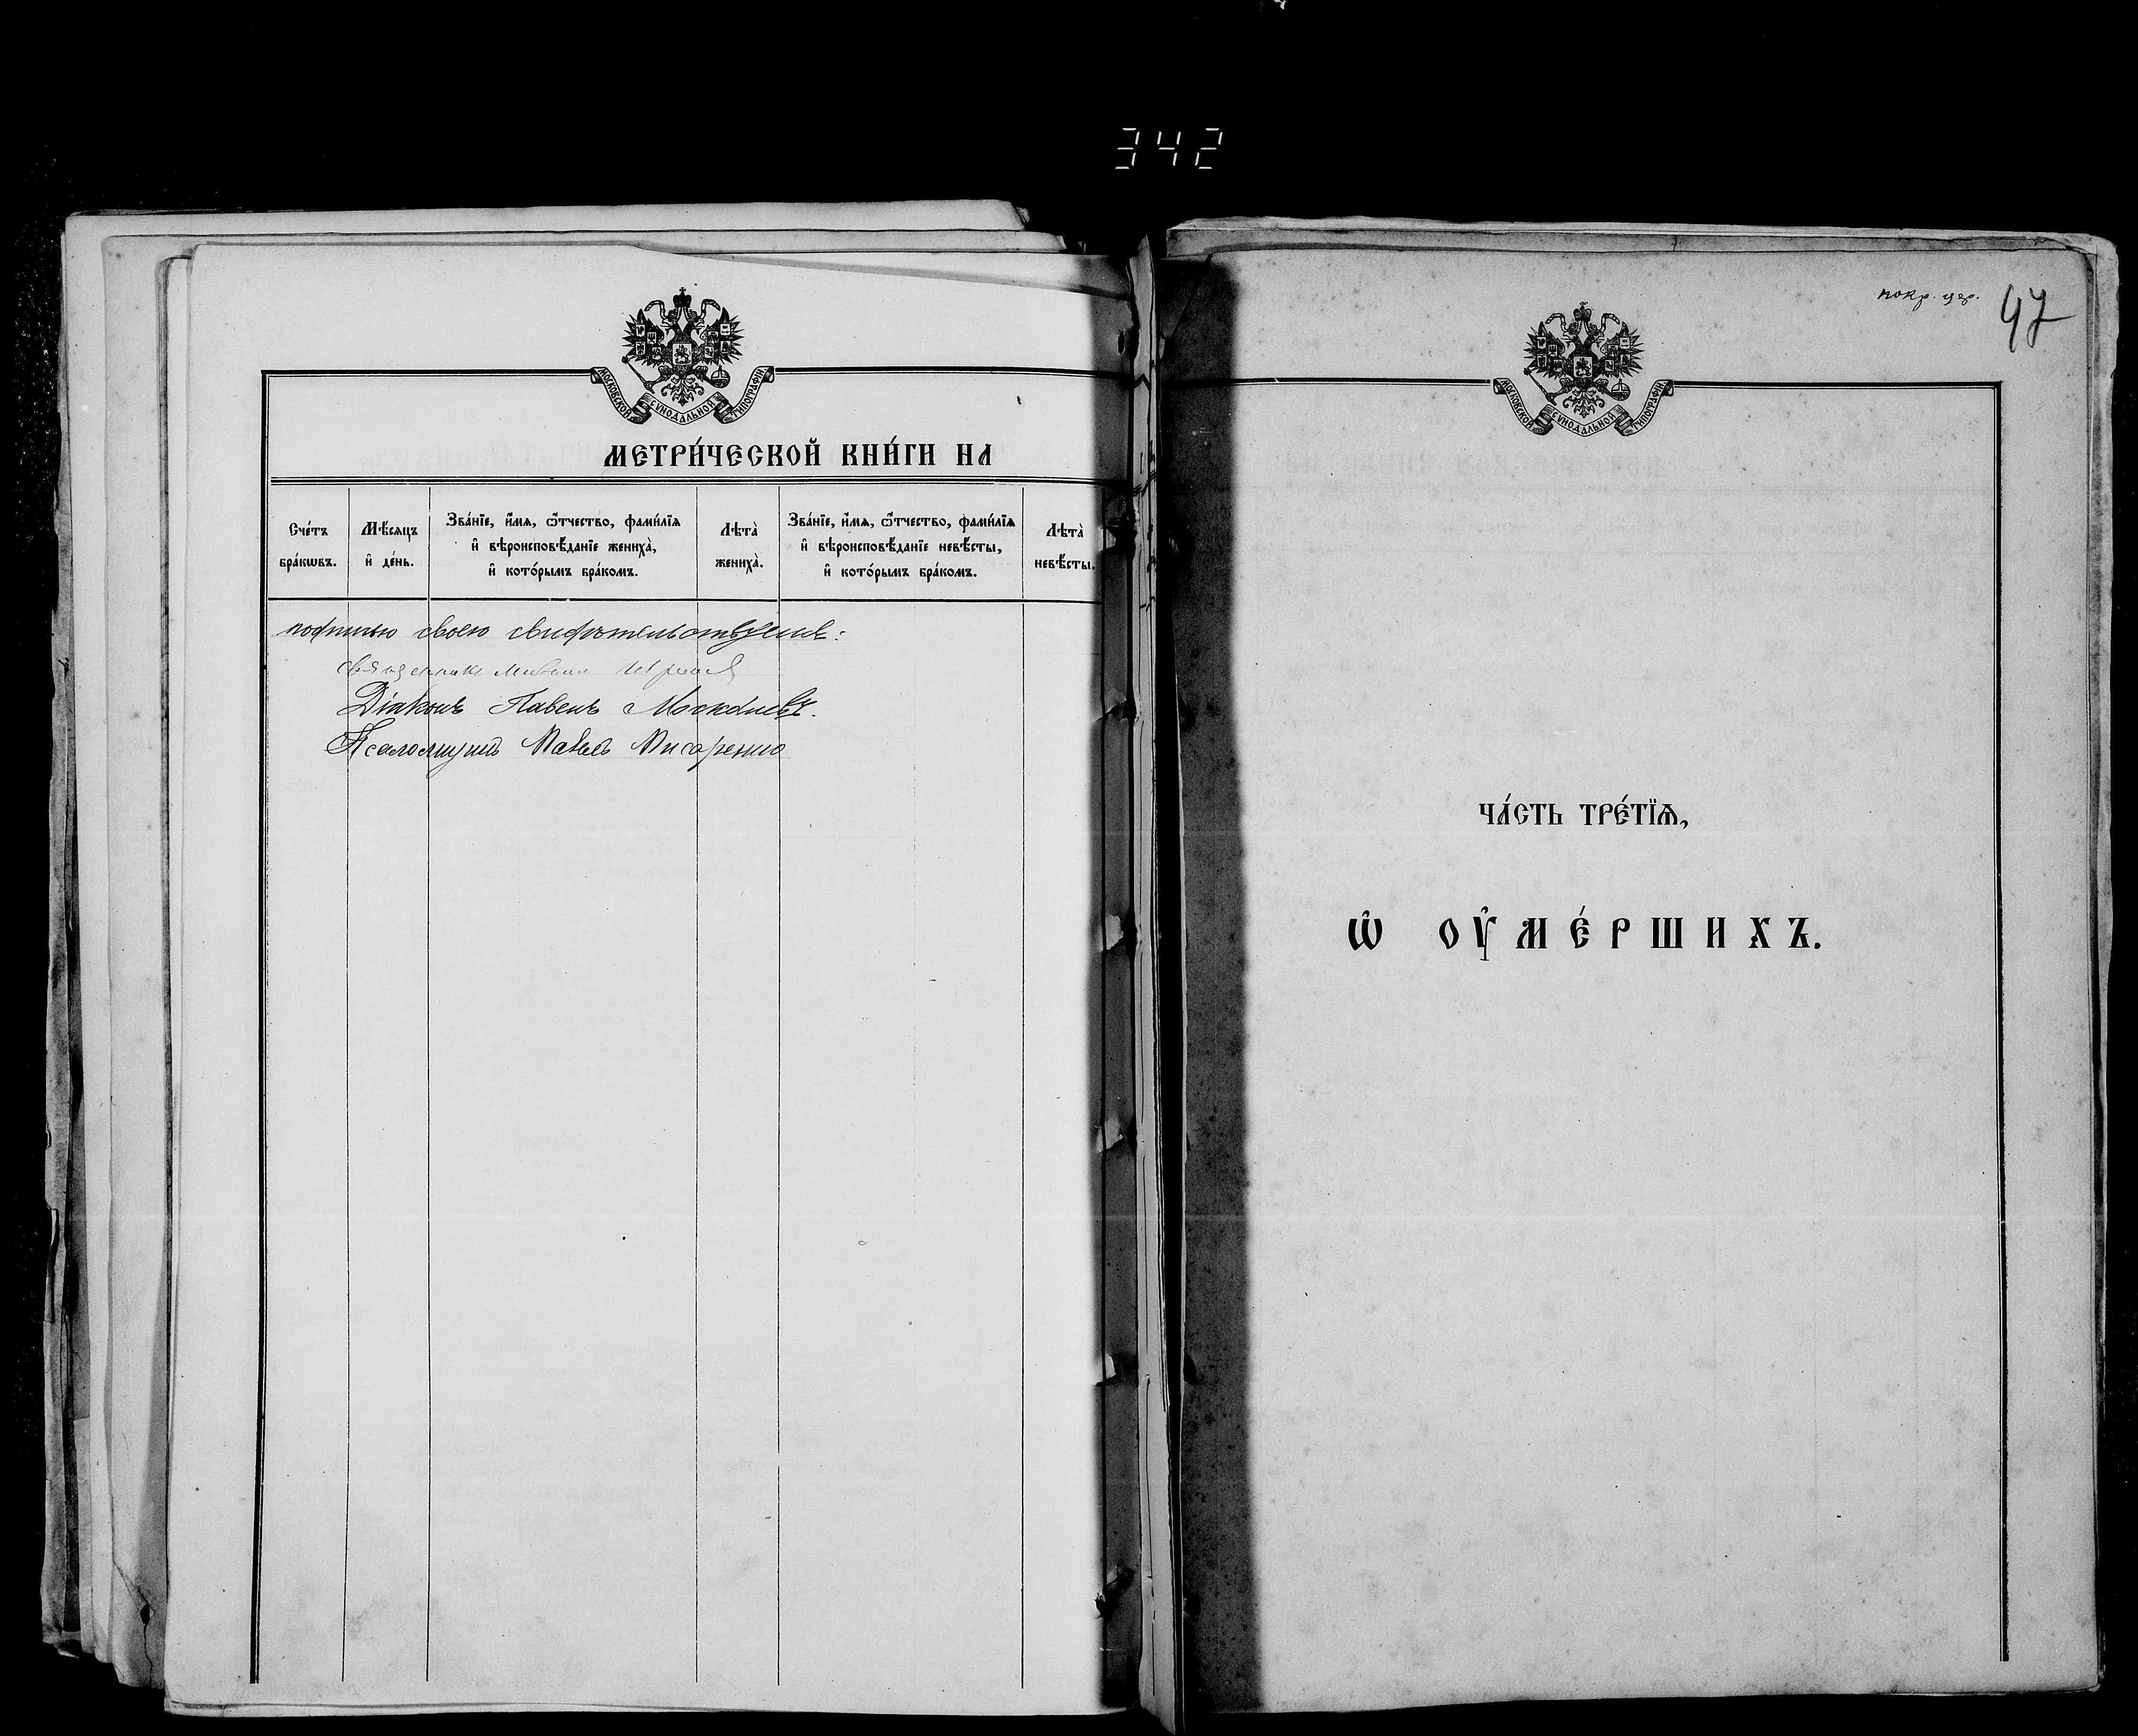 342
МОСКОВСКОЙ СѴНОДАЛЬНОЙ ТИПОГРАФІИ
МЕТРИ́ЧЕСКОЙ КНИ́ГИ НА
Сче́тъ бра́кѡвъ.
Мѣ́сяцъ и҆ де́нь.
Зва́нїе, и҆́мѧ, ѻ҆́тчество, фами́лїѧ
и҆ вѣроисповѣ́данїе жениха̀,
и҆ кото́рымъ бра́комъ.
Лѣта̀ жениха̀.
Зва́нїе, и҆́мѧ, ѻ҆́тчество, фами́лїѧ
и҆ вѣроисповѣ́данїе невѣ́сты,
и҆ кото́рымъ бра́комъ.
Лѣта̀ невѣ́сты.
подписью своею свидѣтельствуемъ:
священникъ
Діаконъ Павелъ
Псаломщикъ Павелъ Писаренко
покр. цер.
47
МОСКОВСКОЙ СѴНОДАЛЬНОЙ ТИПОГРАФІИ
ЧА́СТЬ ТРЕ́ТЇѦ,
Ѡ҆ ОУ҆МЕ́РШИХЪ.